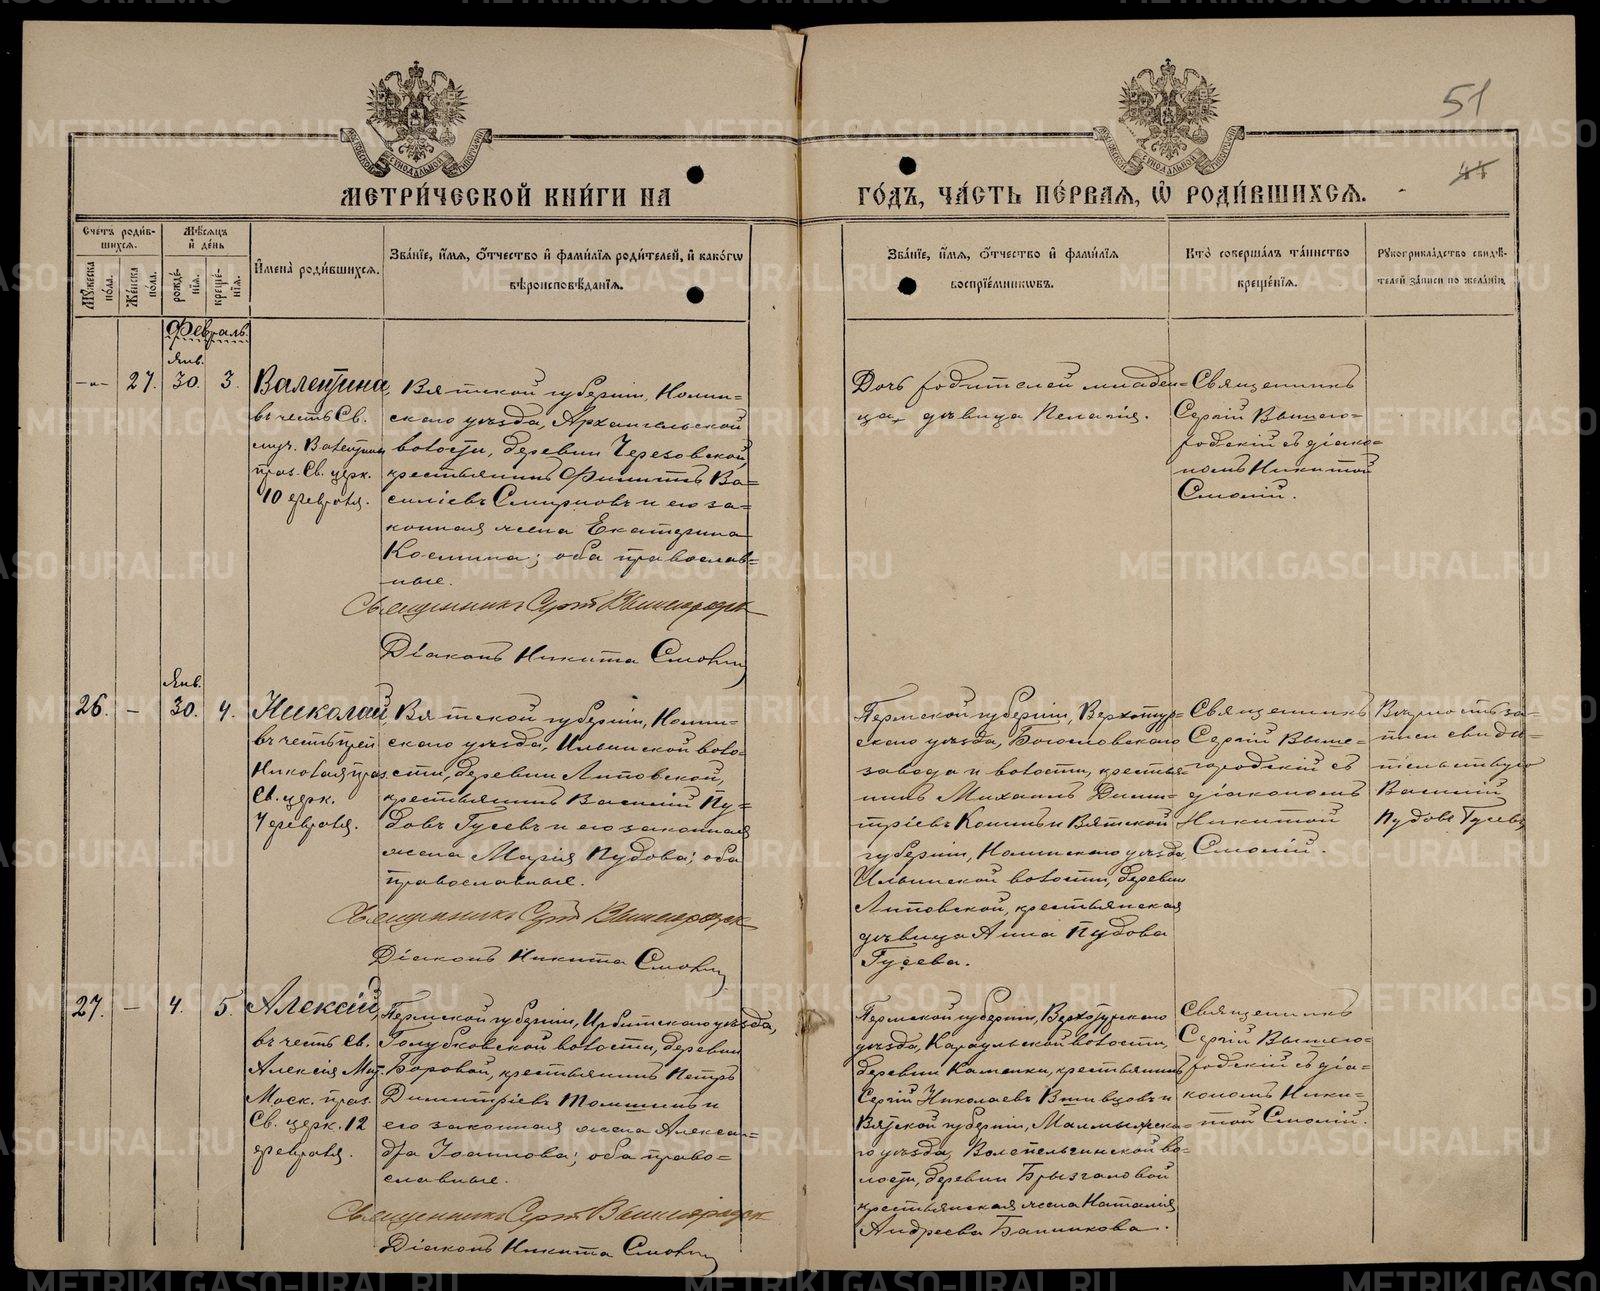 51
44
МЕТРИ́ЧЕСКОЙ КНИ́ГИ НА
ГО́ДЪ, ЧА́СТЬ ПЕ́РВАѦ, Ѡ҆ РОДИ́ВШИХСѦ.
Сче́тъ роди́в-
шихсѧ.
Мꙋ́жеска
по́ла.
Же́нска
по́ла.
Мѣ́сѧцъ
и҆ де́нь
рожде́-
нїѧ.
креще́-
нїѧ.
И҆мена̀ роди́вшихсѧ.
Зва́нїе, и҆́мѧ, ѻ҆́тчество и҆ фами́лїѧ роди́телей, и҆ како́гѡ
вѣроисповѣ́данїѧ.
Зва́нїе, и҆́мѧ, ѻ҆́тчество и҆ фами́лїѧ
воспрїе́мникѡвъ.
Кто̀ соверша́лъ та́инство
креще́нїѧ.
Рꙋкоприкла́дство свидѣ́-
телей за́писи по жела́нїю.
Февраль.
Янв.
-"-
27.
30.
3.
Валентина,
въ честь Св.
муч. Валентины
праз. Св. церк.
10 февраля.
Вятской губерніи, Нолин-
скаго уѣзда, Архангельской
волости, деревни Черезовской,
крестьянинъ Филиппъ Ва-
силіевъ Смирновъ и его за-
конная жена Екатерина
Космина; оба православ-
ные.
Священникъ Сергій Вышегородск
Діаконъ Никита Смолин
Дочь родителей младен-
ца, дѣвица Пелагія.
Священникъ
Сергій Вышего-
родскій съ діако-
номъ Никитой
Смоліи.
Янв.
26.
-
30.
4.
Николай,
въ честь преп
Николая праз.
Св. церк.
4 февраля.
Вятской губерніи, Нолин-
скаго уѣзда, Ильинской воло-
сти, деревни Липовской,
крестьянинъ Василій Пу-
довъ Гусевъ и его законная
жена Марія Пудова; оба
православные.
Священникъ Сергій Вышегородск
Діаконъ Никита Смолин
Пермской губерніи, Верхотур-
скаго уѣзда, Богословскаго
завода и волости, крестья-
нинъ Михаилъ Дими-
тріевъ и Вятской
губерніи, Нолинскаго уѣзда,
Ильинской волости, деревни
Липовской, крестьянская
дѣвица Анна Пудова
Гусева.
Священникъ
Сергій Выше-
городскій съ
діакономъ
Никитой
Смоліи.
Въ
писи свидѣ-
тельствую
Василій
Пудовъ Гусевъ
27.
-
4.
5.
Алексій,
въ честь Св.
Алексія Мит.
Моск. праз.
Св. церк. 12
февраля.
Пермской губерніи, Ирбитскаго уѣзда,
Голубковской волости, деревни
Боровой, крестьянинъ Петръ
Димитріевъ Томшинъ и
его законная жена Алексан-
дра Іоаннова; оба право-
славные.
Священникъ Сергій Вышегородск
Діаконъ Никита Смолин
Пермской губерніи, Верхотурскаго
уѣзда, Караульской волости,
деревни Каменки, крестьянинъ
Сергій Николаевъ Вшивцовъ и
Вятской губерніи, Малмыжска-
го уѣзда, Волипельгинской во-
лости, деревни Брызгаловой
крестьянская жена Наталія
Андреева Банникова.
Священникъ
Сергій Вышего-
родскій съ діа-
кономъ Ники-
той Смоліи.
METRIKI.GASO-URAL.RU